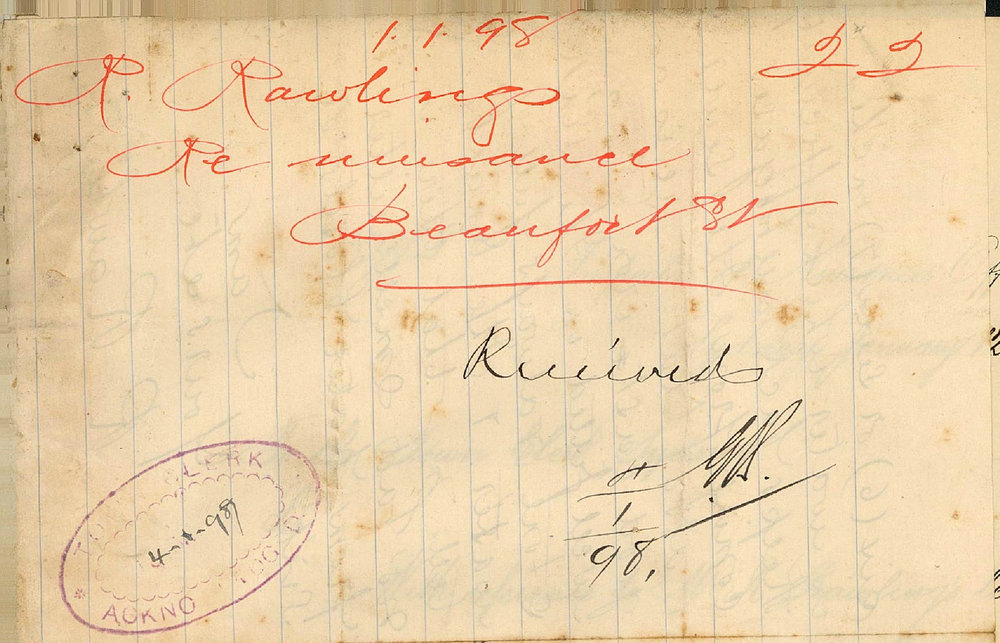 1.1.98
22
R. Rawlings
Re nuisance
Beaufort St
Received
98.
TOWN CLERK
4-1-98
ACKNO